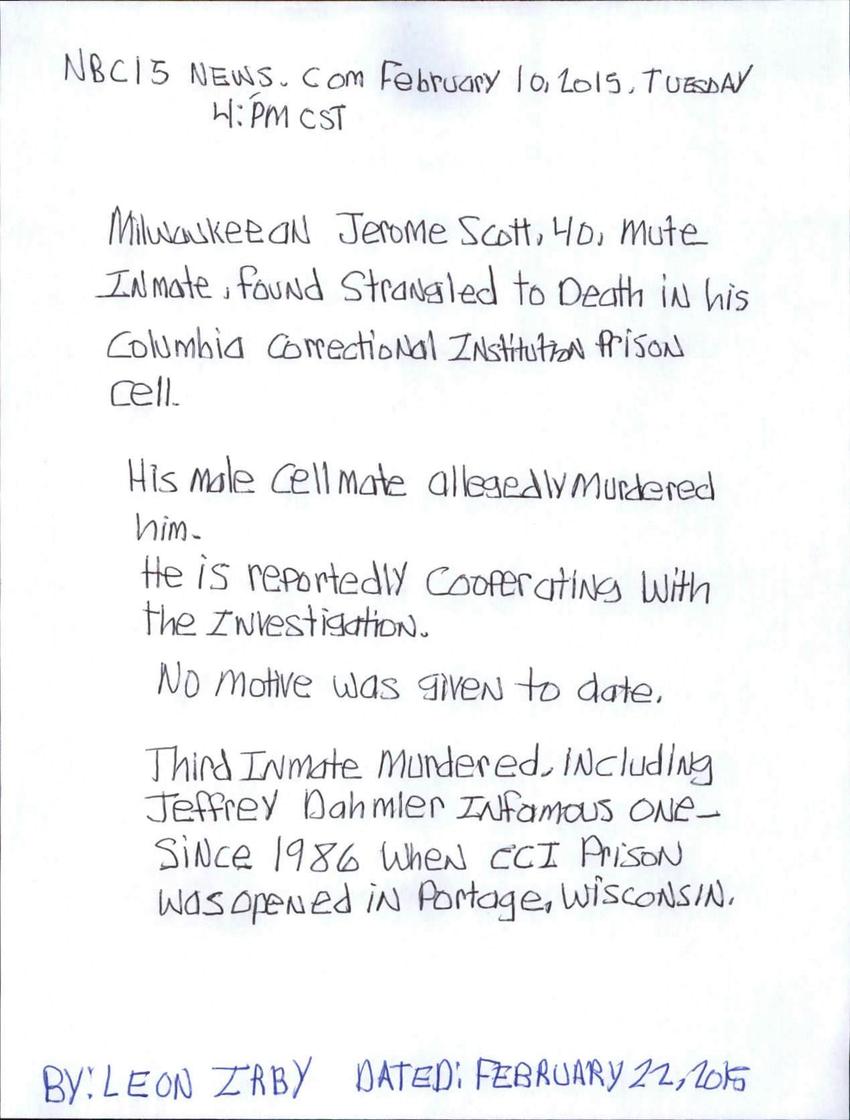 NBC15 NEWS. Com February 10, 2015, TUESDAY
4:PM CST
Milwaukeean Jerome Scott, 40, mute
Inmate, found Strangled to Death in his
Columbia Correctional Institution Prison
Cell.
His male Cellmate allegedly Murdered
him.
He is reportedly Cooperating With
the Investigation.
No motive was given to date.
Third Inmate Murdered, including
Jeffrey Dahmler Infamous one-
Since 1986 when CCI Prison
was opened in Portage, Wisconsin.
BY: LEON IRBY DATED: FEBRUARY 22, 2015